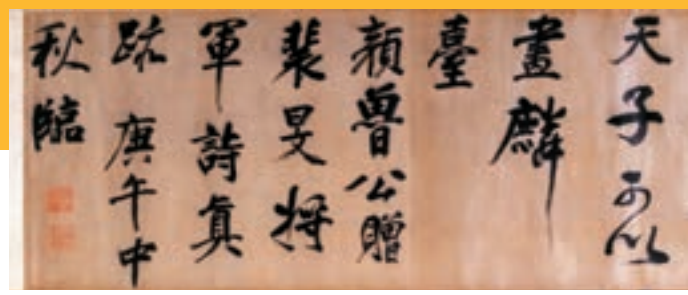 天子可以
畫麟
臺
顏魯公贈
裴旻將
軍詩真
跡庚午中
秋臨